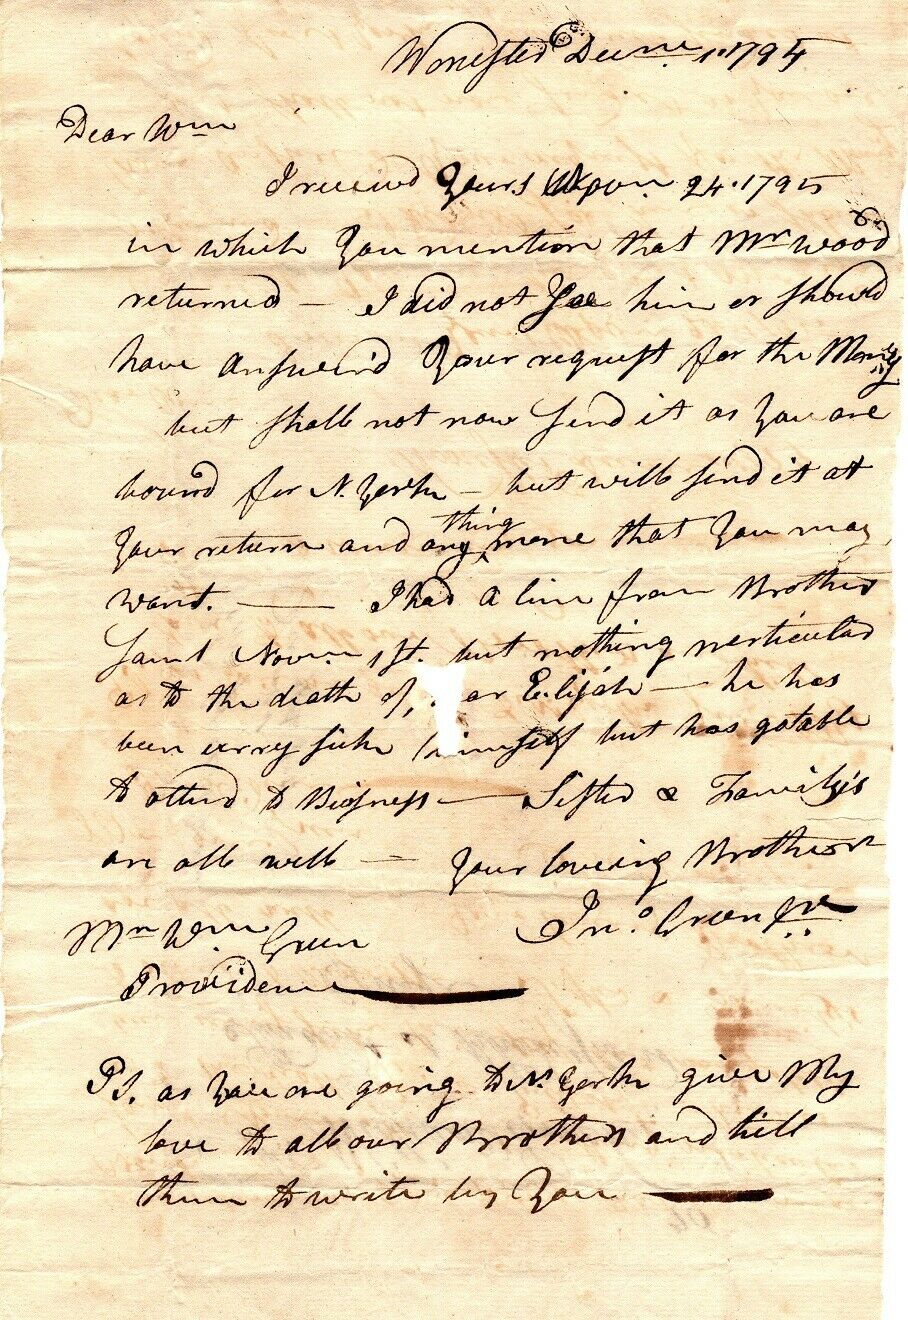 Worcester Decm 1. 1795
Dear Wm
I received Yours 24. 1795
in which You mention that Mr Wood
returned — I did not See him or should
have Answer'd Your request for the Money
but shall not now Send it as You are
bound for N. York — but will send it at
thing
Your return and any more that You may
want. — I had a line from Brother
Saml Novm 1st. but nothing perticular
as to the death of, Elijah — he has
been verry sick himself but has gotable
to attend to Bisness — Sister & Family's
are all well — Your loveing Brother
Jno. Green Jr
Mr Wm Green
Providence
PS. as You are going to N. York give My
love to all our Brothers and tell
them to write by You